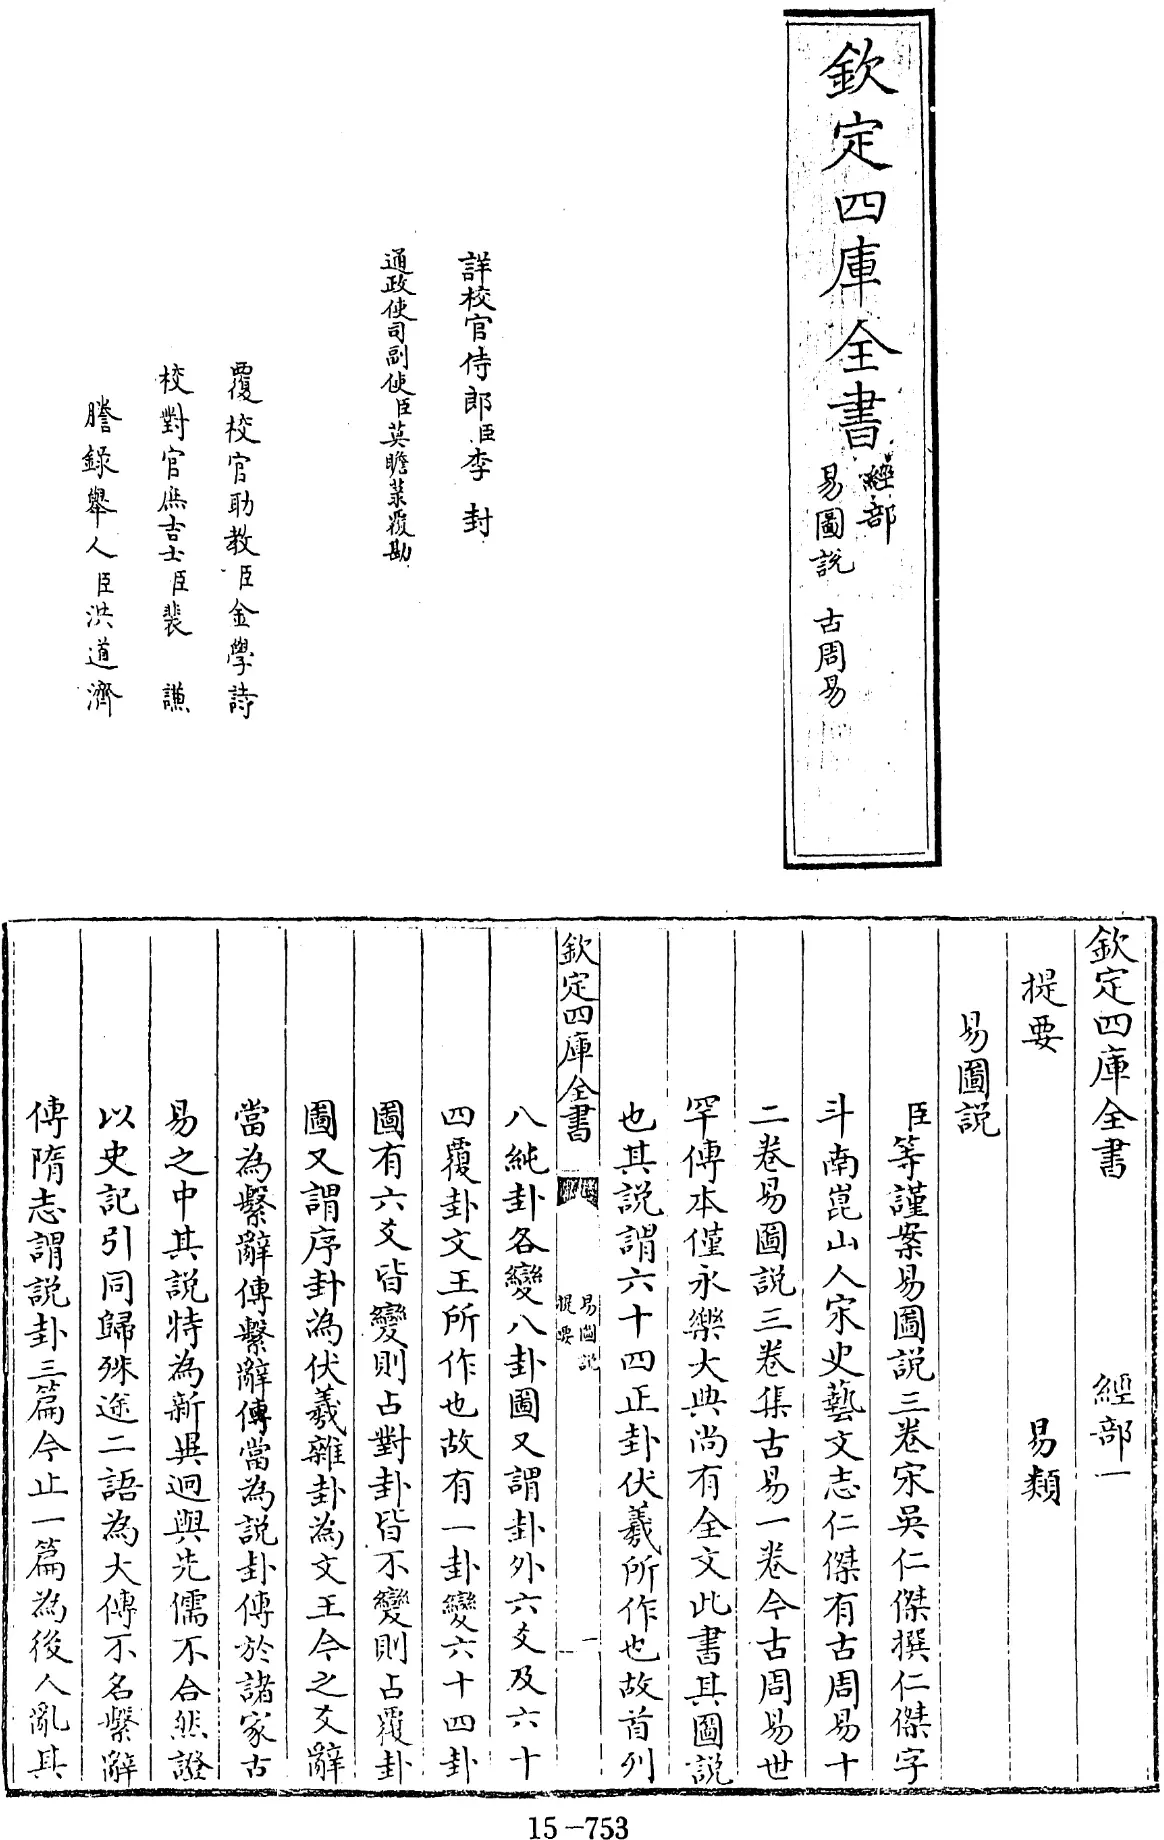 欽定四庫全書
經部
易圖說 古周易
詳校官侍郎臣李封
通政使司副使臣莫瞻菉覆勘
覆校官助教臣金學詩
校對官庶吉士臣裴謙
謄錄舉人臣洪道濟
欽定四庫全書 經部一
提要 易類
易圖説
臣等謹案易圖説三卷宋吳仁傑撰仁傑字
斗南崑山人宋史藝文志仁傑有古周易十
二卷易圖説三卷集古易一卷今古周易世
罕傳本僅永樂大典尚有全文此書其圖説
也其説謂六十四正卦伏羲所作也故首列
欽定四庫全書
易圖説
提要
一
八純卦各變八卦圖又謂卦外六爻及六十
四覆卦文王所作也故有一卦變六十四卦
圖有六爻皆變則占對卦皆不變則占覆卦
圖又謂序卦為伏羲雜卦為文王今之爻辭
當為繫辭傳繫辭傳當為説卦傳於諸家古
易之中其説特為新異迥與先儒不合然證
以史記引同歸殊途二語為大傳不名繫辭
傳隋志謂説卦三篇今止一篇為後人亂其
15-753